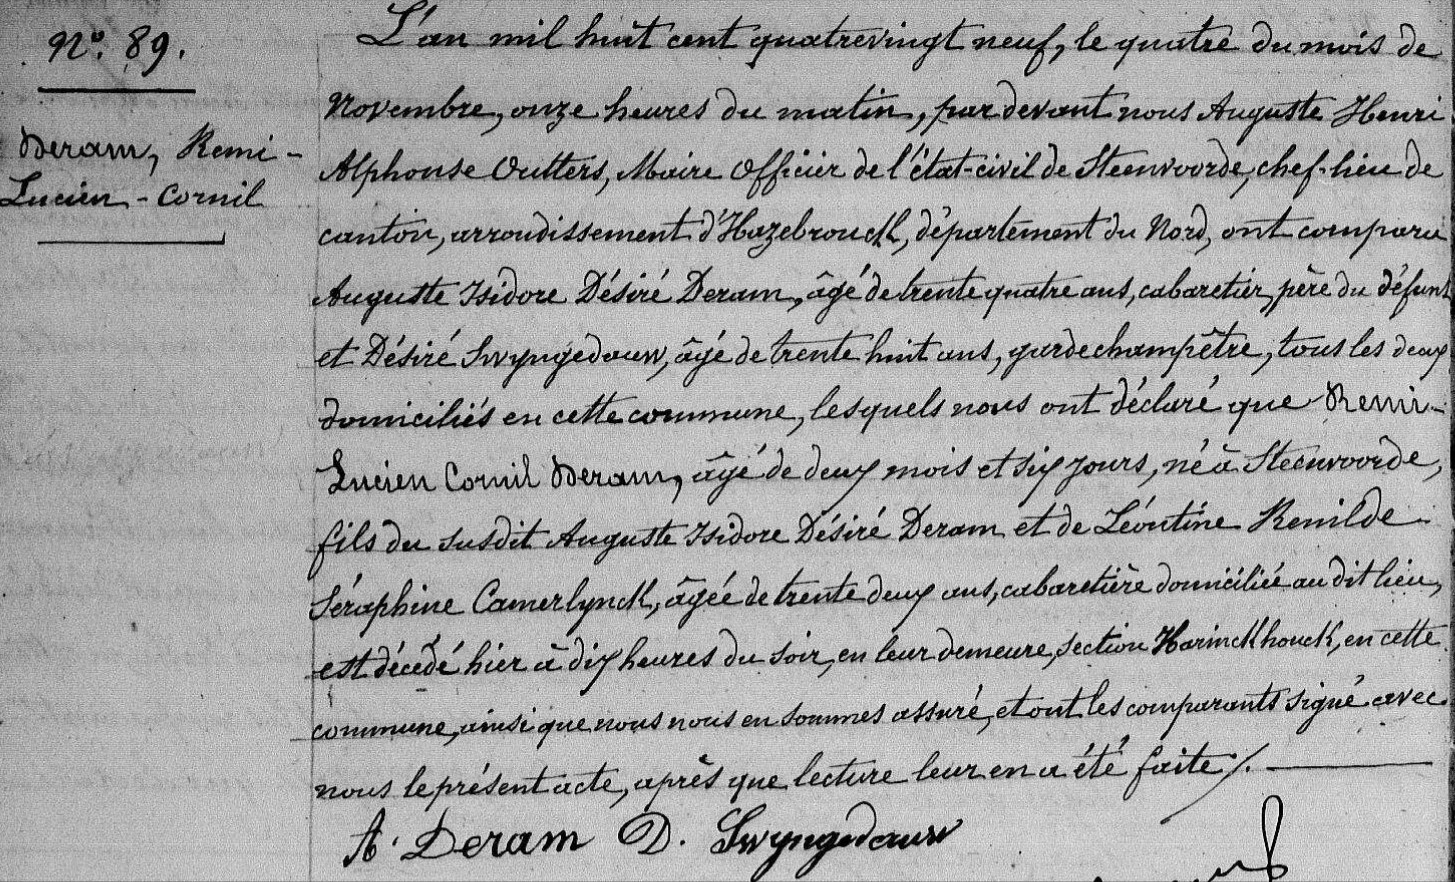 N°. 89.
Deram, Remi-
Lucien-Cornil
L'an mil huit cent quatrevingt neuf, le quatre du mois de
Novembre, onze heures du matin, par devant nous Auguste Henri
Alphonse Outters, Maire Officier de l'état-civil de Steenvoorde, chef-lieu de
canton, arrondissement d'Hazebrouck, département du Nord, ont comparu
Auguste Isidore Désiré Deram, âgé de trente quatre ans, cabaretier, père du défunt
et Désiré Swyngedauw, âgé de trente huit ans, garde champêtre, tous les deux
domiciliés en cette commune, lesquels nous ont déclaré que Remi-
Lucien Cornil Deram, âgé de deux mois et six jours, né à Steenvoorde,
fils du susdit Auguste Isidore Désiré Deram et de Léontine Renilde
Séraphine Camerlynck, âgée de trente deux ans, cabaretière domiciliée au dit lieu,
est décédé hier à dix heures du soir, en leur demeure, section Harinckhouck, en cette
commune, ainsi que nous nous en sommes assuré, et ont les comparants signé avec
nous le présent acte, après que lecture leur en a été faite /.
A. Deram D. Swyngedauw